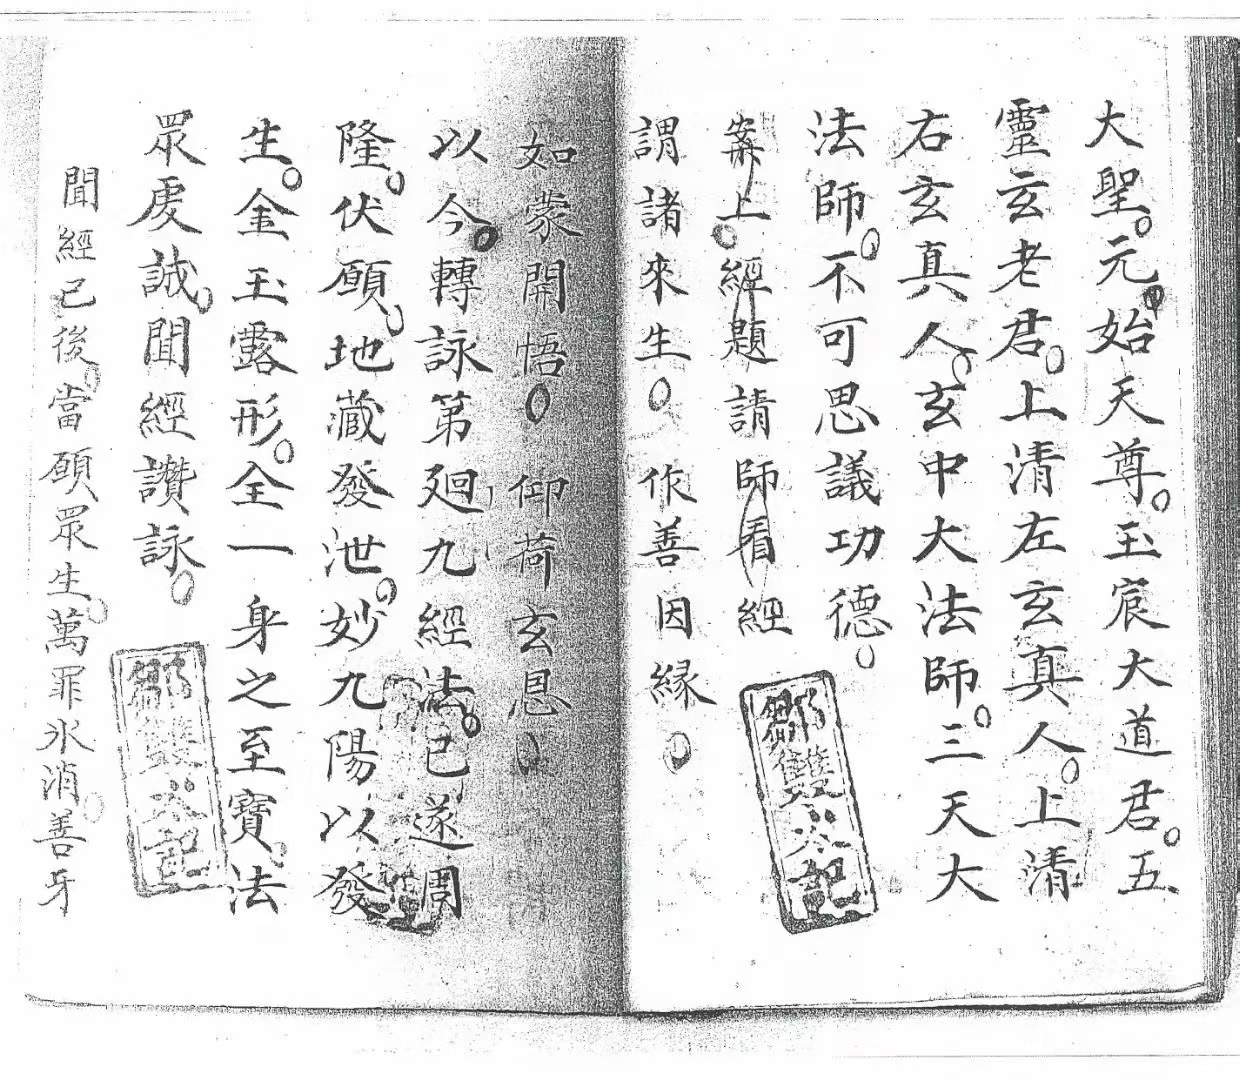 大聖元始天尊玉宸大道君五
靈玄老君上清左玄真人上清
右玄真人玄中大法師三天大
法師不可思議功德
案上經題請師看經
謂諸來生 作善因緣
如蒙開悟 仰荷玄恩
以今轉詠第廻九經法已遂周
隆伏願地藏發泄妙九陽以發
生金玉露形全一身之至寶法
眾虔誠聞經讚詠
聞經已後當願眾生萬罪氷消善牙
鄒雙火記
鄒雙火記